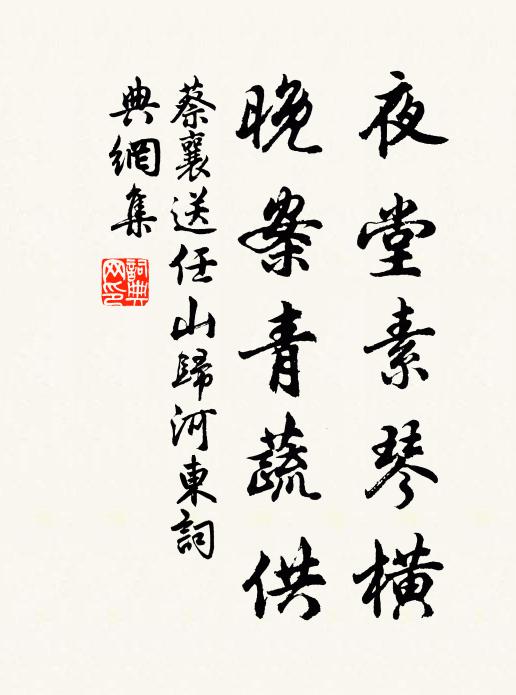 夜堂素琴橫
晚案青蔬供
蔡襄送任山歸河東詞
典網集
詞典
網印